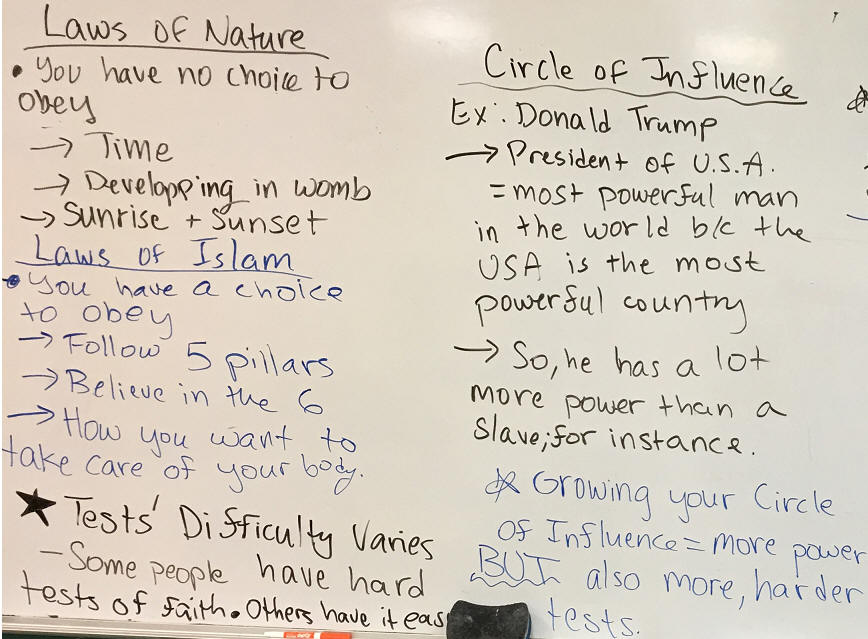 Laws of Nature
• You have no choice to
obey
→ Time
→ Developping in womb
→ Sunrise + Sunset
Laws of Islam
• You have a choice
to obey
→ Follow 5 pillars
→ Believe in the 6
→ How you want to
take care of your body.
★ Tests' Difficulty Varies
- Some people have hard
tests of faith. Others have it eas
Circle of Influence
Ex: Donald Trump
→ President of U.S.A.
= most powerful man
in the world b/c the
USA is the most
powerful country
→ So, he has a lot
more power than a
slave, for instance.
☆ Growing your Circle
of Influence = more power
BUT also more, harder
tests.